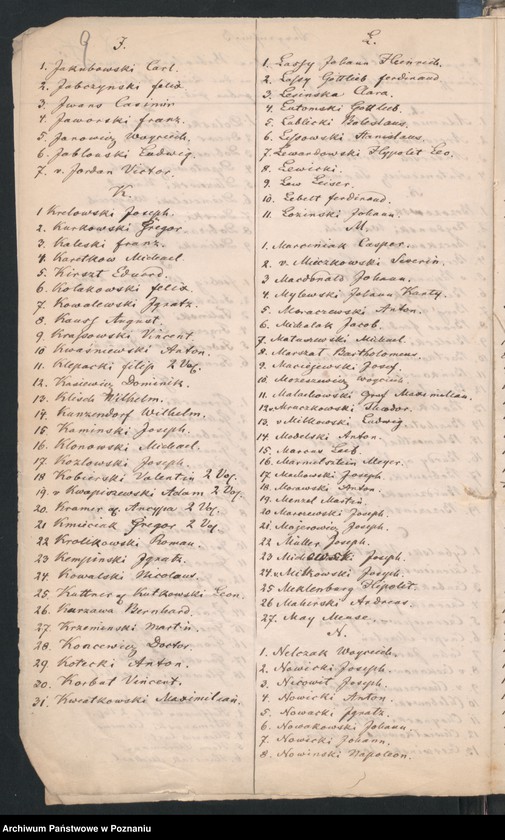 9
J.
1. Jakubowski Carl.
2. Jabczynski felix
3. Jwans Casimir
4. Jaworski franz.
5. Janowicz Woyciech.
6. Jablonski Ludwig.
7. v. Jordan Victor.
K.
1 Krelowski Joseph.
2. Kurkowski Gregor
3. Kaleski franz.
4. Karetkow Michael.
5. Kirszt Eduard.
6. Kolakowski felix
7. Kowalewski Jgnatz.
8. Kausch August.
9. Krassowski Vincent.
10 Kwasniewski Anton.
11. Klepacki filip 2 Vog.
12. Kasiewicz Dominik.
13. Klisch Wilhelm.
14. Kunzendorf Wilhelm.
15. Kaminski Joseph.
16. Klonowski Michael.
17. Kozlowski Joseph.
18 Kobierski Valentin 2 Vog.
19. v Kwapiszewski Adam 2 Vog.
20. Kramer 2 Vog.
21 Kmieciak Gregor 2 Vog
22 Krolikowski Roman.
23 Kempinski Jgnatz.
24. Kowalski Nicolaus.
25. Kuttner Kutkowski Leon.
26. Kurzawa Bernhard.
27. Krzemienski Martin.
28. Koncewicz Doctor.
29 Kotecki Anton.
30. Korbut Vincent.
31. Kwiatkowski Maximilian.
L.
1. Lassy Johann Heinrich.
2. Lassy Gottlieb ferdinand
3. Lesinska Clara.
4. Lutomski Gottlieb.
5. Lublicki Boleslaus.
6. Lissowski Stanislaus.
7. Lewandowski Hypolit Leo.
8. Lewicki.
9. Leiser.
10. Lebelt ferdinand.
11. Lozinski Johann.
M.
1. Marciniak Casper.
2. v. Miczkowski Severin.
3 Macdonald Johann.
4. Mylewski Johann Kanty.
5. Moraczewski Anton.
6. Michalak Jacob.
7. Matuszewski Michael.
8. Marszat Bartholomeus.
9. Maciejewski Josef.
10. Mozeszewicz Woyciech
11. Malachowski Graf Maximilian.
12. Mraczkowski Theodor.
13. v Milkowski Ludwig.
14. Modelski Anton.
15. Marcus Leib.
16. Marmelstein Meyer.
17. Machowski Joseph.
18. Morawski Anton.
19. Menzel Martin.
20 Maszewski Joseph.
21. Majerowicz Joseph.
22. Müller Joseph.
23 Joseph.
24. v. Mitkowski Joseph.
25 Mecklenburg Hipolit.
26 Malinski Andreas.
27. May Mense.
N.
1. Nelczak Woyciech.
2. Nowicki Joseph.
3. Nicowit Joseph.
4. Nowicki Anton.
5. Nowacki Jgnatz.
6. Nowakowski Johann
7. Nowicki Johann.
8. Nowinski Napoleon.
Archiwum Państwowe w Poznaniu
szukajwarchiwach.gov.pl